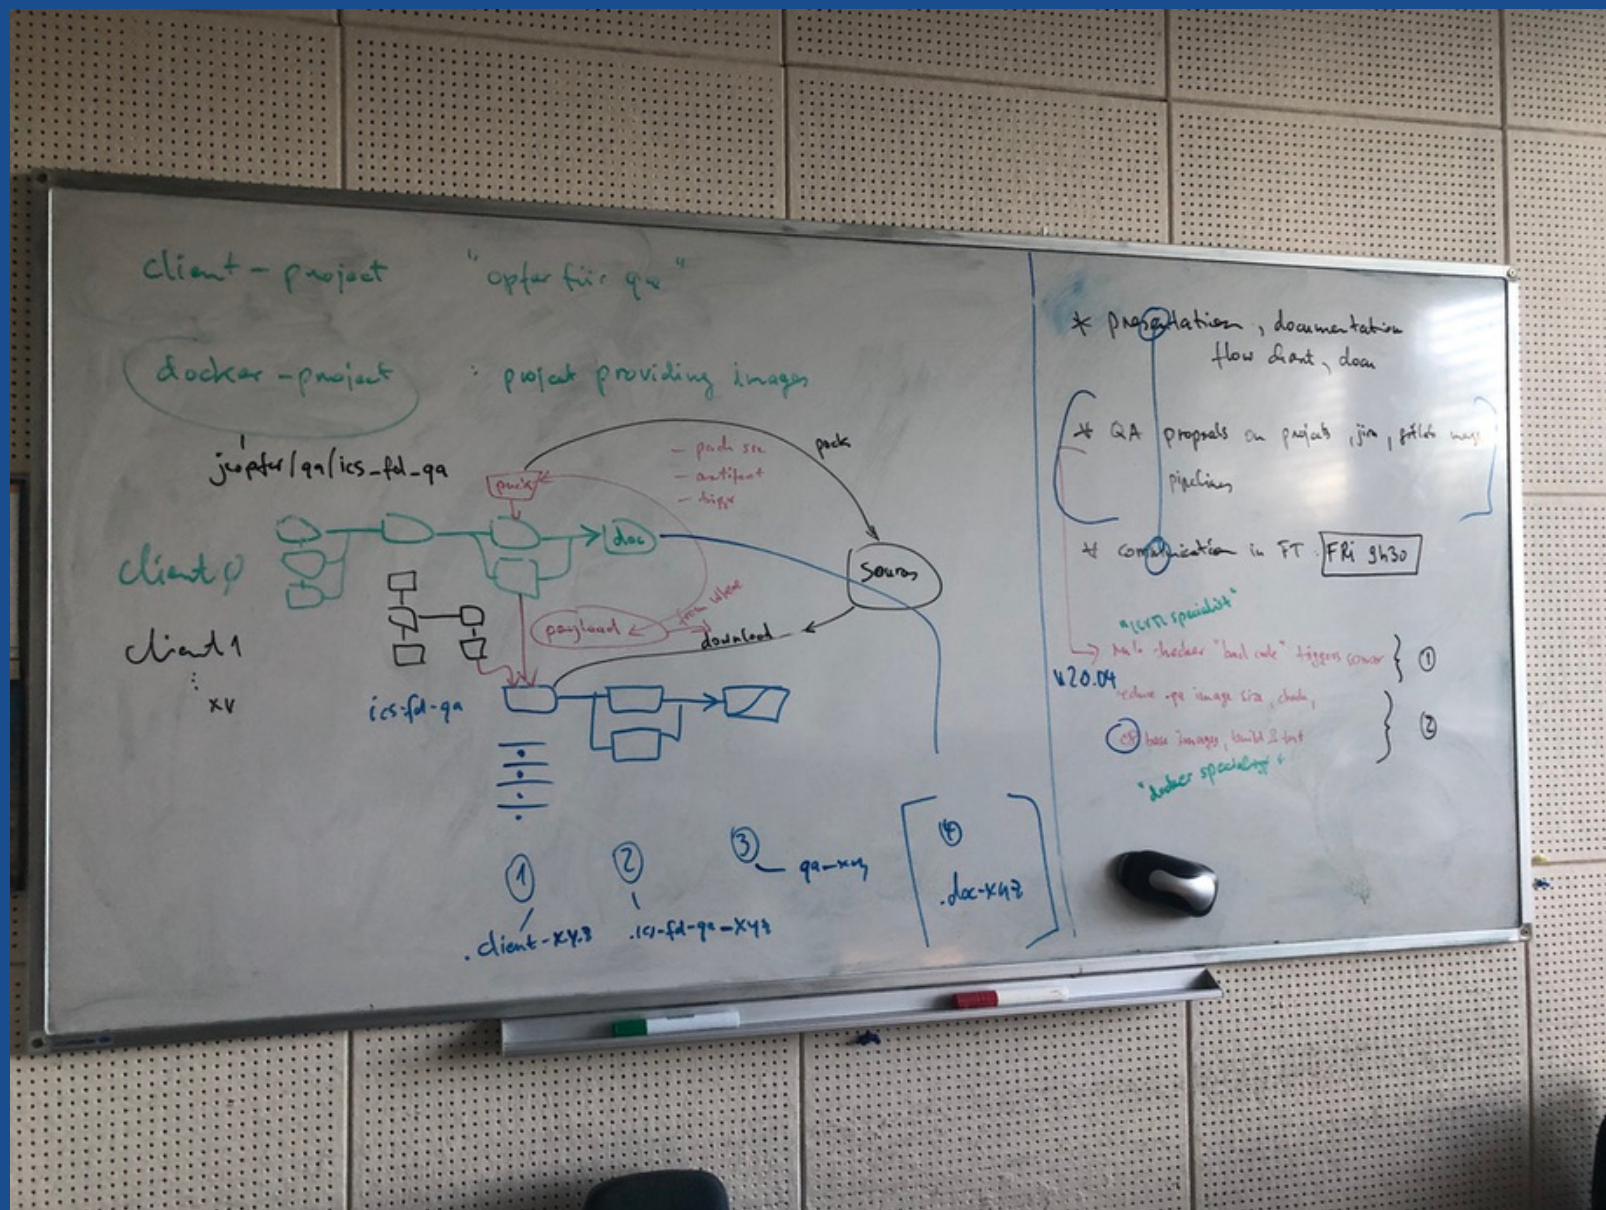 client - project "opfer für qa"
docker - project : project providing images
jupfer/qa/ics_fd_qa
pack
- pack src
- artifact
- trigger
pack
client 0
doc
sources
client 1
payload
from where
download
xv
ics-fd-qa
1
2
3
4
.client-xyz
.ics-fd-qa-xyz
qa-xyz
.doc-xyz
* presentation, documentation
flow chart, docu
* QA proposals on projects, jira, gitlab
pipelines
* communication in FT FRi 9h30
specialist"
checker "bad code" triggers sonar } 1
v20.04
reduce qa image size, check,
base images, build & test } 2
"docker specialist"